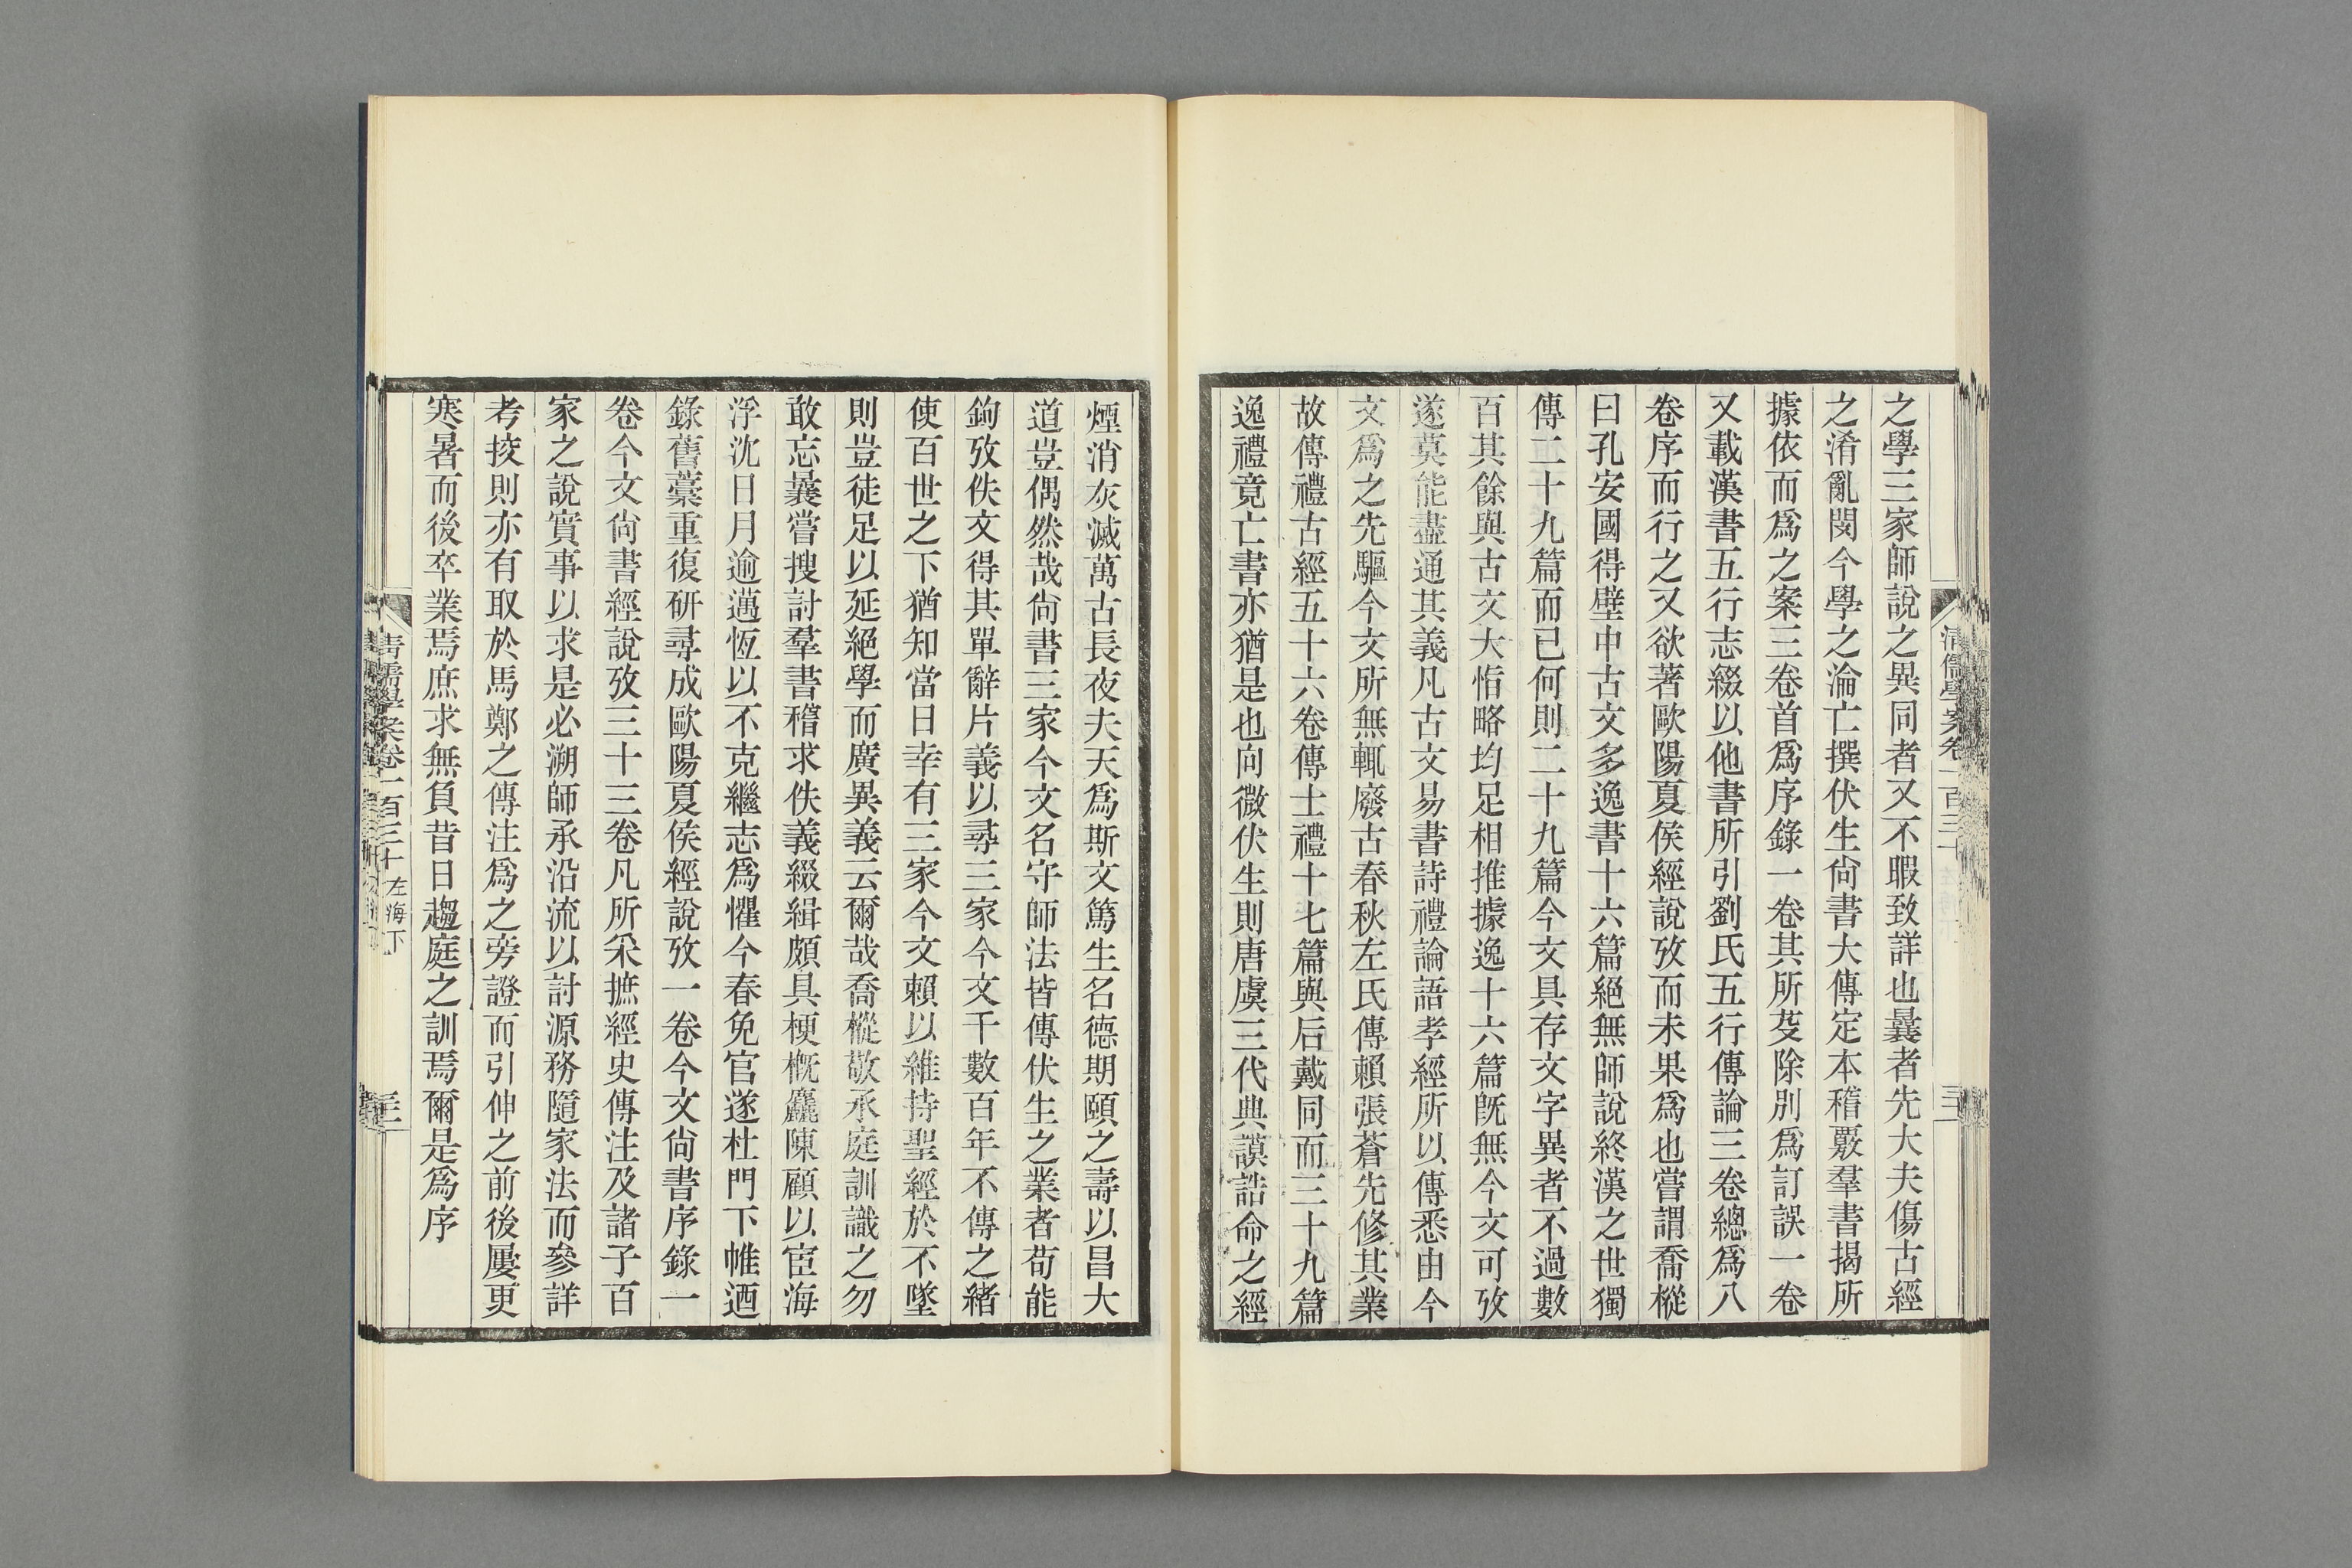 之學三家師說之異同者又不暇致詳也曩者先大夫傷古經
之淆亂閔今學之淪亡撰伏生尙書大傳定本稽覈羣書揭所
據依而爲之案三卷首爲序錄一卷其所芟除別爲訂誤一卷
又載漢書五行志綴以他書所引劉氏五行傳論三卷總爲八
卷序而行之又欲著歐陽夏侯經說攷而未果爲也嘗謂喬樅
曰孔安國得壁中古文多逸書十六篇絕無師說終漢之世獨
傳二十九篇而已何則二十九篇今文具存文字異者不過數
百其餘與古文大恉略均足相推據逸十六篇旣無今文可攷
遂莫能盡通其義凡古文易書詩禮論語孝經所以傳悉由今
文爲之先驅今文所無輒廢古春秋左氏傳賴張蒼先修其業
故傳禮古經五十六卷傳士禮十七篇與后戴同而三十九篇
逸禮竟亡書亦猶是也向微伏生則唐虞三代典謨誥命之經
煙消灰滅萬古長夜夫天爲斯文篤生名德期頤之壽以昌大
道豈偶然哉尙書三家今文名守師法皆傳伏生之業者苟能
鉤攷佚文得其單辭片義以尋三家今文千數百年不傳之緒
使百世之下猶知當日幸有三家今文賴以維持聖經於不墜
則豈徒足以延絕學而廣異義云爾哉喬樅敬承庭訓識之勿
敢忘曩嘗搜討羣書稽求佚義綴緝頗具梗槪麤陳顧以宦海
浮沈日月逾邁恆以不克繼志爲懼今春免官遂杜門下帷迺
錄舊藁重復研尋成歐陽夏侯經說攷一卷今文尙書序錄一
卷今文尙書經說攷三十三卷凡所采摭經史傳注及諸子百
家之說實事以求是必溯師承沿流以討源務隨家法而參詳
考挍則亦有取於馬鄭之傳注爲之旁證而引伸之前後屢更
寒暑而後卒業焉庶求無負昔日趨庭之訓焉爾是爲序
清儒學案卷一百三十 左海下